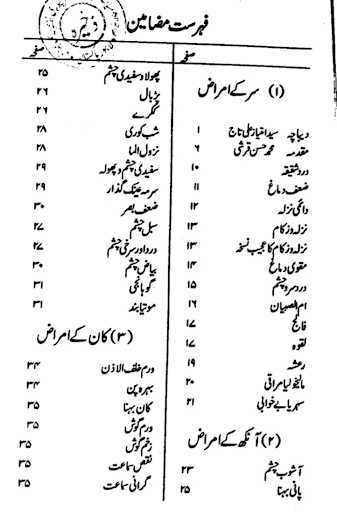 فہرست مضامین
ذخیرہ
صفحہ
(۱) سر کے امراض
دیباچہ سید امتیاز علی تاج ۱
مقدمہ محمد حسن قرشی ۶
درد شقیقہ ۱۰
ضعف دماغ ۱۱
دائمی نزلہ ۱۲
نزلہ و زکام ۱۳
نزلہ و زکام کا عجیب نسخہ ۱۳
مقوی دماغ ۱۴
درد سر و چشم ۱۵
ام الصبیان ۱۶
فالج ۱۷
لقوہ ۱۷
رعشہ ۱۹
مالیخولیا مراقی ۲۰
سہر یا بے خوابی ۲۱
(۲) آنکھ کے امراض
آشوب چشم ۲۳
پانی بہنا ۲۵
صفحہ
پھولا و سفیدی چشم ۲۵
پڑبال ۲۶
ککرے ۲۶
شب کوری ۲۸
نزول الما ۲۸
سفیدی چشم و پھولہ ۲۹
سرمہ عینک گذار ۲۹
ضعف بصر ۳۰
سبل چشم ۲۷
درد اور سرخی چشم ۲۷
بیاض چشم ۳۰
گوہانجی ۳۱
موتیا بند ۳۱
(۳) کان کے امراض
ورم خلف الاذن ۳۴
بہرہ پن ۳۴
کان بہنا ۳۵
ورم گوش ۳۵
زخم گوش ۳۵
نقص سماعت ۳۵
گرانی سماعت ۳۵